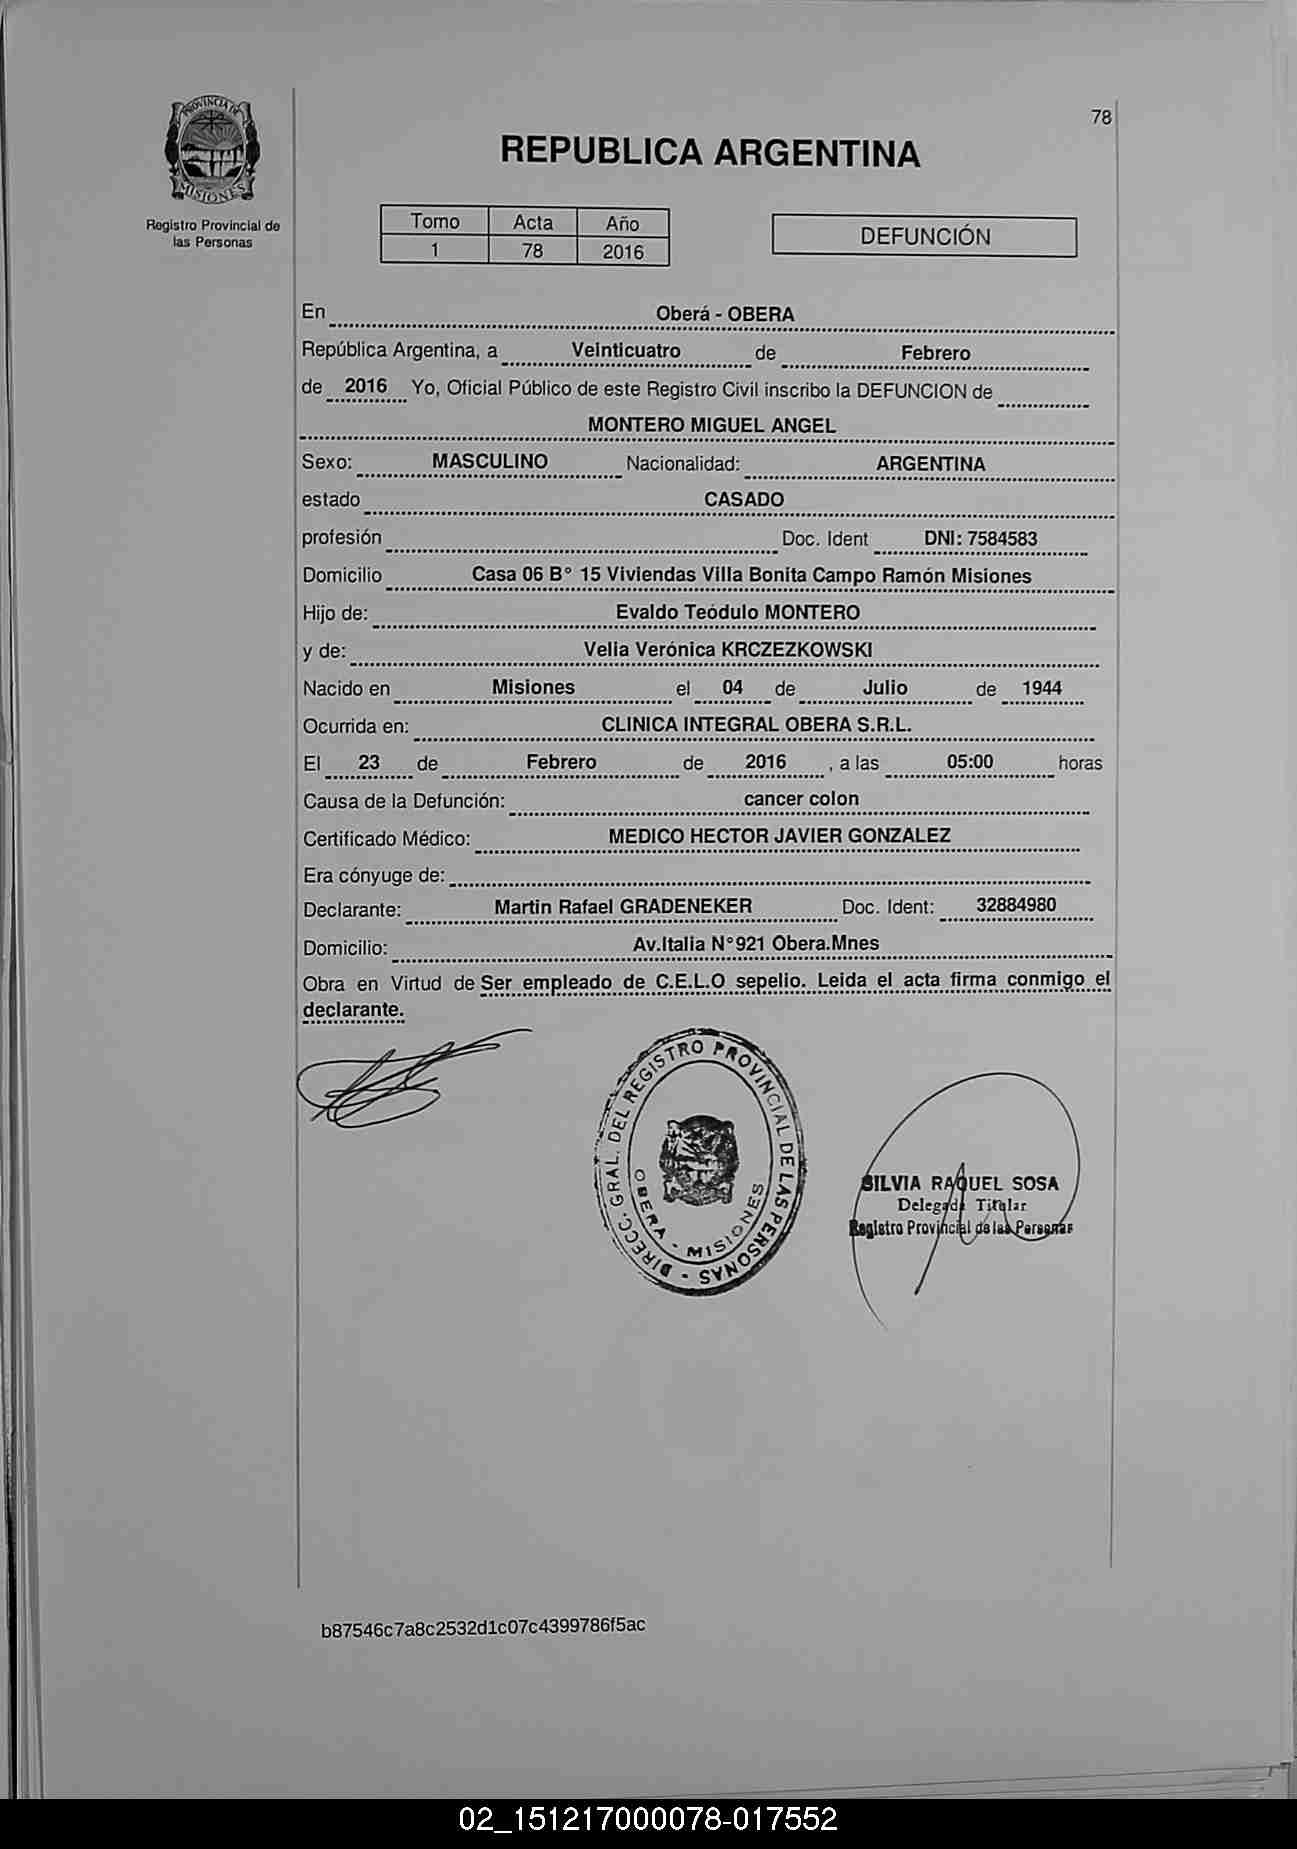 PROVINCIA DE
MISIONES
Registro Provincial de
las Personas
78
REPUBLICA ARGENTINA
Tomo Acta Año
1 78 2016
DEFUNCIÓN
En Oberá - OBERA
República Argentina, a Veinticuatro de Febrero
de 2016 Yo, Oficial Público de este Registro Civil inscribo la DEFUNCION de
MONTERO MIGUEL ANGEL
Sexo: MASCULINO Nacionalidad: ARGENTINA
estado CASADO
profesión Doc. Ident DNI: 7584583
Domicilio Casa 06 B° 15 Viviendas Villa Bonita Campo Ramón Misiones
Hijo de: Evaldo Teódulo MONTERO
y de: Velia Verónica KRCZEZKOWSKI
Nacido en Misiones el 04 de Julio de 1944
Ocurrida en: CLINICA INTEGRAL OBERA S.R.L.
El 23 de Febrero de 2016 , a las 05:00 horas
Causa de la Defunción: cancer colon
Certificado Médico: MEDICO HECTOR JAVIER GONZALEZ
Era cónyuge de:
Declarante: Martin Rafael GRADENEKER Doc. Ident: 32884980
Domicilio: Av.Italia N°921 Obera.Mnes
Obra en Virtud de Ser empleado de C.E.L.O sepelio. Leida el acta firma conmigo el
declarante.
DIRECC. GRAL. DEL REGISTRO PROVINCIAL DE LAS PERSONAS -
OBERA - MISIONES
SILVIA RAQUEL SOSA
Delegada Titular
Registro Provincial de las Personas
b87546c7a8c2532d1c07c4399786f5ac
02_151217000078-017552